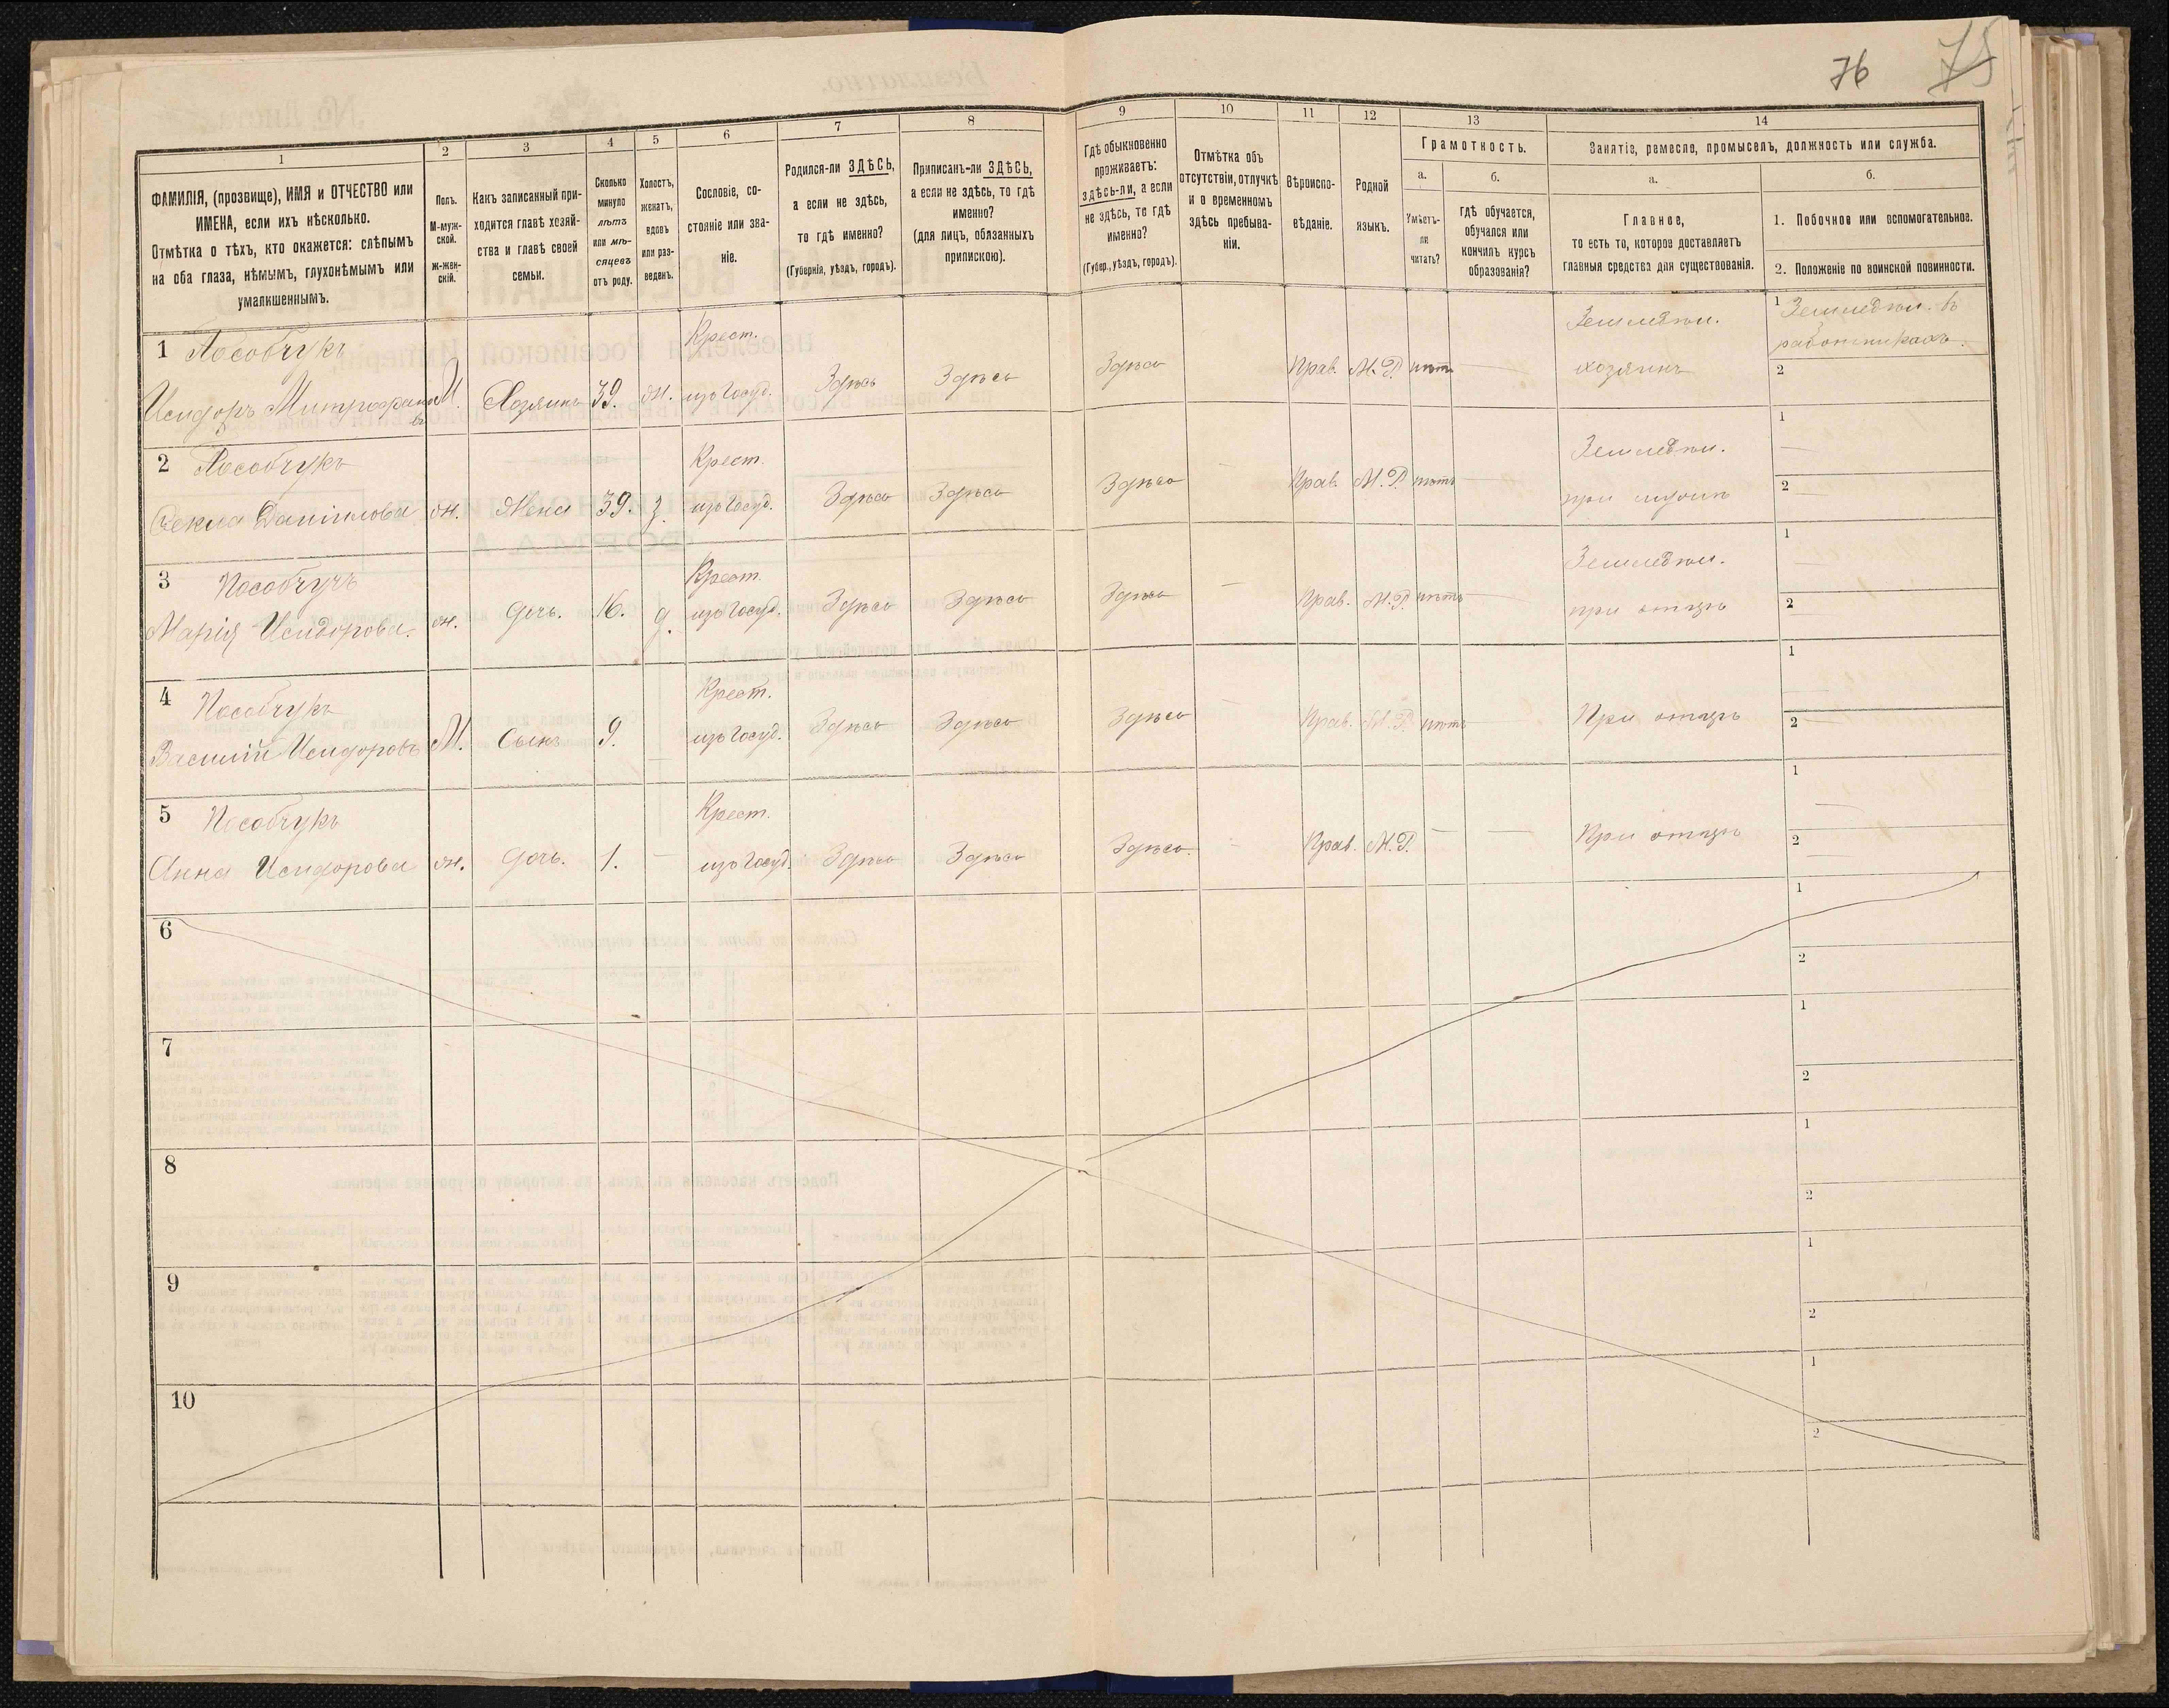 76 75
1 2 3 4 5 6 7 8 9 10 11 12 13 14
ФАМИЛІЯ, (прозвище), ИМЯ и ОТЧЕСТВО или
ИМЕНА, если ихъ нѣсколько.
Отмѣтка о тѣхъ, кто окажется: слѣпымъ
на оба глаза, нѣмымъ, глухонѣмымъ или
умалишеннымъ.
Полъ.
М-муж-
ской.
ж-жен-
скій.
Какъ записанный при-
ходится главѣ хозяй-
ства и главѣ своей
семьи.
Сколько
минуло
лѣтъ
или мѣ-
сяцевъ
отъ роду.
Холостъ,
женатъ,
вдовъ
или раз-
веденъ.
Сословіе, со-
стояніе или зва-
ніе.
Родился-ли ЗДѢСЬ,
а если не здѣсь,
то гдѣ именно?
(Губернія, уѣздъ, городъ).
Приписанъ-ли ЗДѢСЬ,
а если не здѣсь, то гдѣ
именно?
(для лицъ, обязанныхъ
припискою).
Гдѣ обыкновенно
проживаетъ:
здѣсь-ли, а если
не здѣсь, то гдѣ
именно?
(Губер., уѣздъ, городъ).
Отмѣтка объ
отсутствіи, отлучкѣ
и о временномъ
здѣсь пребыва-
ніи.
Вѣроиспо-
вѣданіе.
Родной
языкъ.
Грамотность.
а.
Умѣетъ-
ли
читать?
б.
гдѣ обучается,
обучался или
кончилъ курсъ
образованія?
Занятіе, ремесло, промыселъ, должность или служба.
а.
Главное,
то есть то, которое доставляетъ
главныя средства для существованія.
б.
1. Побочное или вспомогательное.
2. Положеніе по воинской повинности.
1 Пособчукъ Крест. Земледѣл. 1 Земледѣл. въ
работникахъ.
Исидоръ Митрофановъ М. Хозяинъ 39. ж. изъ госуд. Здѣсь Здѣсь Здѣсь Прав. М.Р. нѣтъ — хозяинъ 2
2 Пособчукъ Крест. Земледѣл. 1 —
Текла Даніилова ж. Жена 39. з. изъ госуд. Здѣсь Здѣсь Здѣсь — Прав. М.Р. нѣтъ — при мужѣ 2 —
3 Пособчукъ Крест. Земледѣл. 1 —
Марія Исидорова. ж. дочь. 16. д. изъ госуд. Здѣсь Здѣсь Здѣсь — Прав. М.Р. нѣтъ — при отцѣ 2 —
4 Пособчукъ Крест. 1 —
Василій Исидоровъ М. Сынъ 9. — изъ госуд. Здѣсь Здѣсь Здѣсь — Прав. М.Р. нѣтъ — При отцѣ 2 —
5 Пособчукъ Крест. 1 —
Анна Исидорова ж. дочь. 1. — изъ госуд. Здѣсь Здѣсь Здѣсь. — Прав. М.Р. — — При отцѣ 2 —
6 1
2
7 1
2
8 1
2
9 1
2
10 1
2